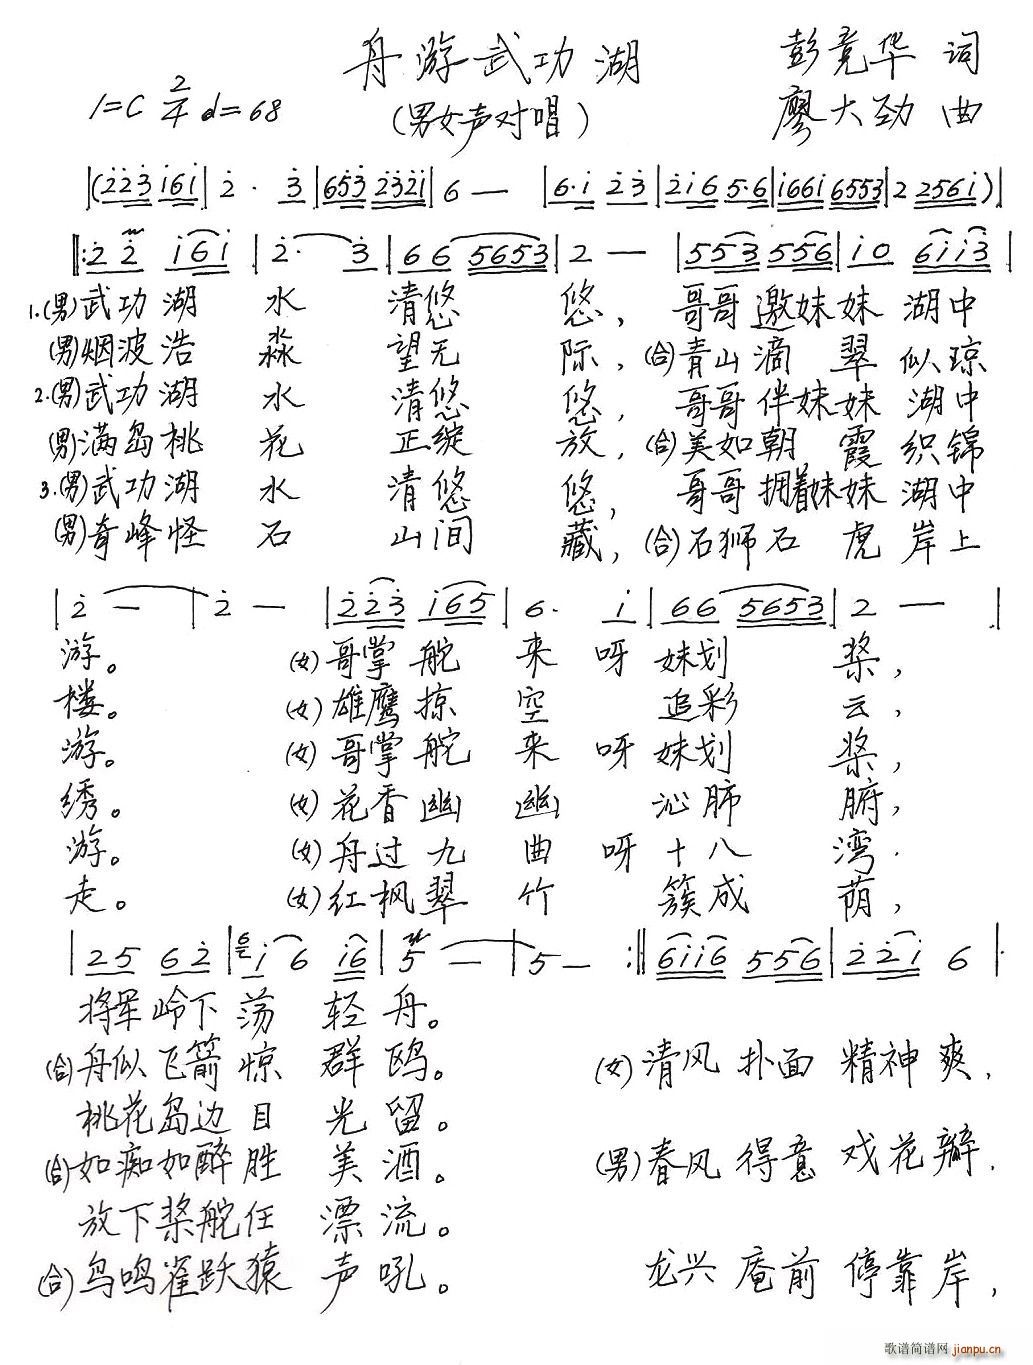 舟游武功湖
彭竟华 词
1=C 2/4 ♩=68
(男女声对唱)
廖大劲 曲
|(2̇2̇3̇ i6i|2̇· 3̇|653̇ 2̇3̇2̇i|6 —|6·i 2̇3̇|2̇i6 5·6|i66i 6553|2 256i)|
‖:2̇2̇ i6i|2̇· 3̇|66 5653|2 —|553 556|i0 6ii3̇|
1.(男)武功湖 水 清悠 悠, 哥哥邀妹妹 湖中
(男)烟波浩 淼 望无 际,(合)青山滴 翠 似琼
2.(男)武功湖 水 清悠 悠, 哥哥伴妹妹 湖中
(男)满岛桃 花 正绽 放,(合)美如朝 霞 织锦
3.(男)武功湖 水 清悠 悠, 哥哥拥着妹妹 湖中
(男)奇峰怪 石 山间 藏,(合)石狮石 虎 岸上
|2̇ —|2̇ —|2̇2̇3̇ i65|6· i|66 5653|2 —|
游。 (女)哥掌舵 来 呀 妹划 桨,
楼。 (女)雄鹰掠 空 追彩 云,
游。 (女)哥掌舵 来 呀 妹划 桨,
绣。 (女)花香幽 幽 沁肺 腑,
游。 (女)舟过九 曲 呀 十八 湾.
走。 (女)红枫翠 竹 簇成 荫,
|25 62̇|6i 6 i6|5 —|5 — :‖6ii6 556|2̇2̇i 6|
将军岭下 荡 轻 舟。
(合)舟似飞箭 惊 群 鸥。 (女)清风 扑面 精神 爽,
桃花岛边 目 光 留。
(合)如痴如醉 胜 美 酒。 (男)春风 得意 戏花 瓣,
放下桨舵任 漂 流。
(合)鸟鸣雀跃猿 声 吼。 龙兴 庵前 停靠 岸,
歌谱简谱网 jianpu.cn